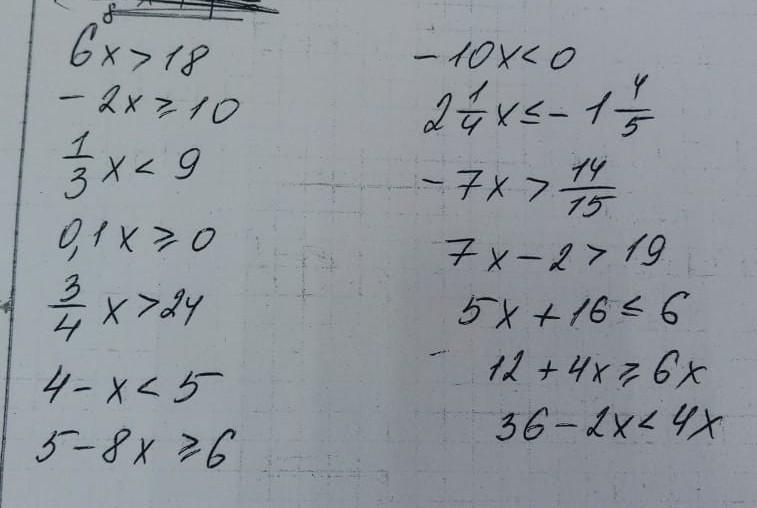 6x > 18
- 2x ≥ 10
1/3 x < 9
0,1x ≥ 0
3/4 x > 24
4 - x < 5
5 - 8x ≥ 6
- 10x < 0
2 1/4 x ≤ - 1 4/5
- 7x > 14/15
7x - 2 > 19
5x + 16 ≤ 6
12 + 4x ≥ 6x
36 - 2x < 4x